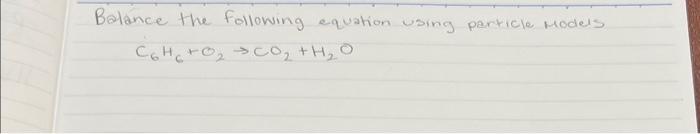 Balance the following equation using particle models
C₆H₆ + O₂ → CO₂ + H₂O